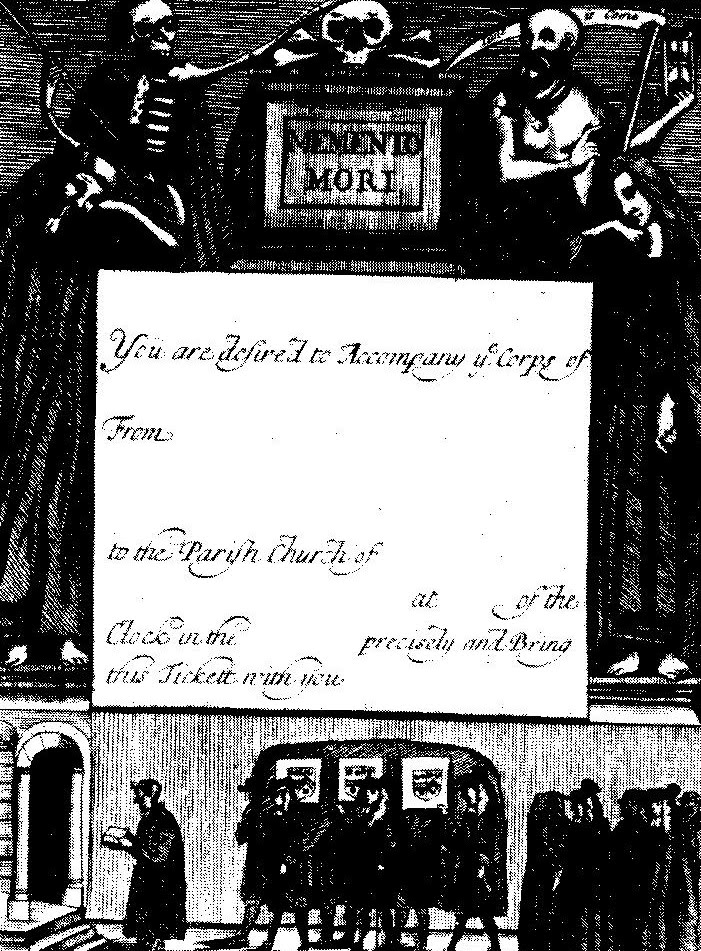 MEMENTO
MORI
You are desired to Accompany yᵉ Corps of
From
to the Parish Church of
at of the
Clock in the precisely and Bring
this Tickett with you